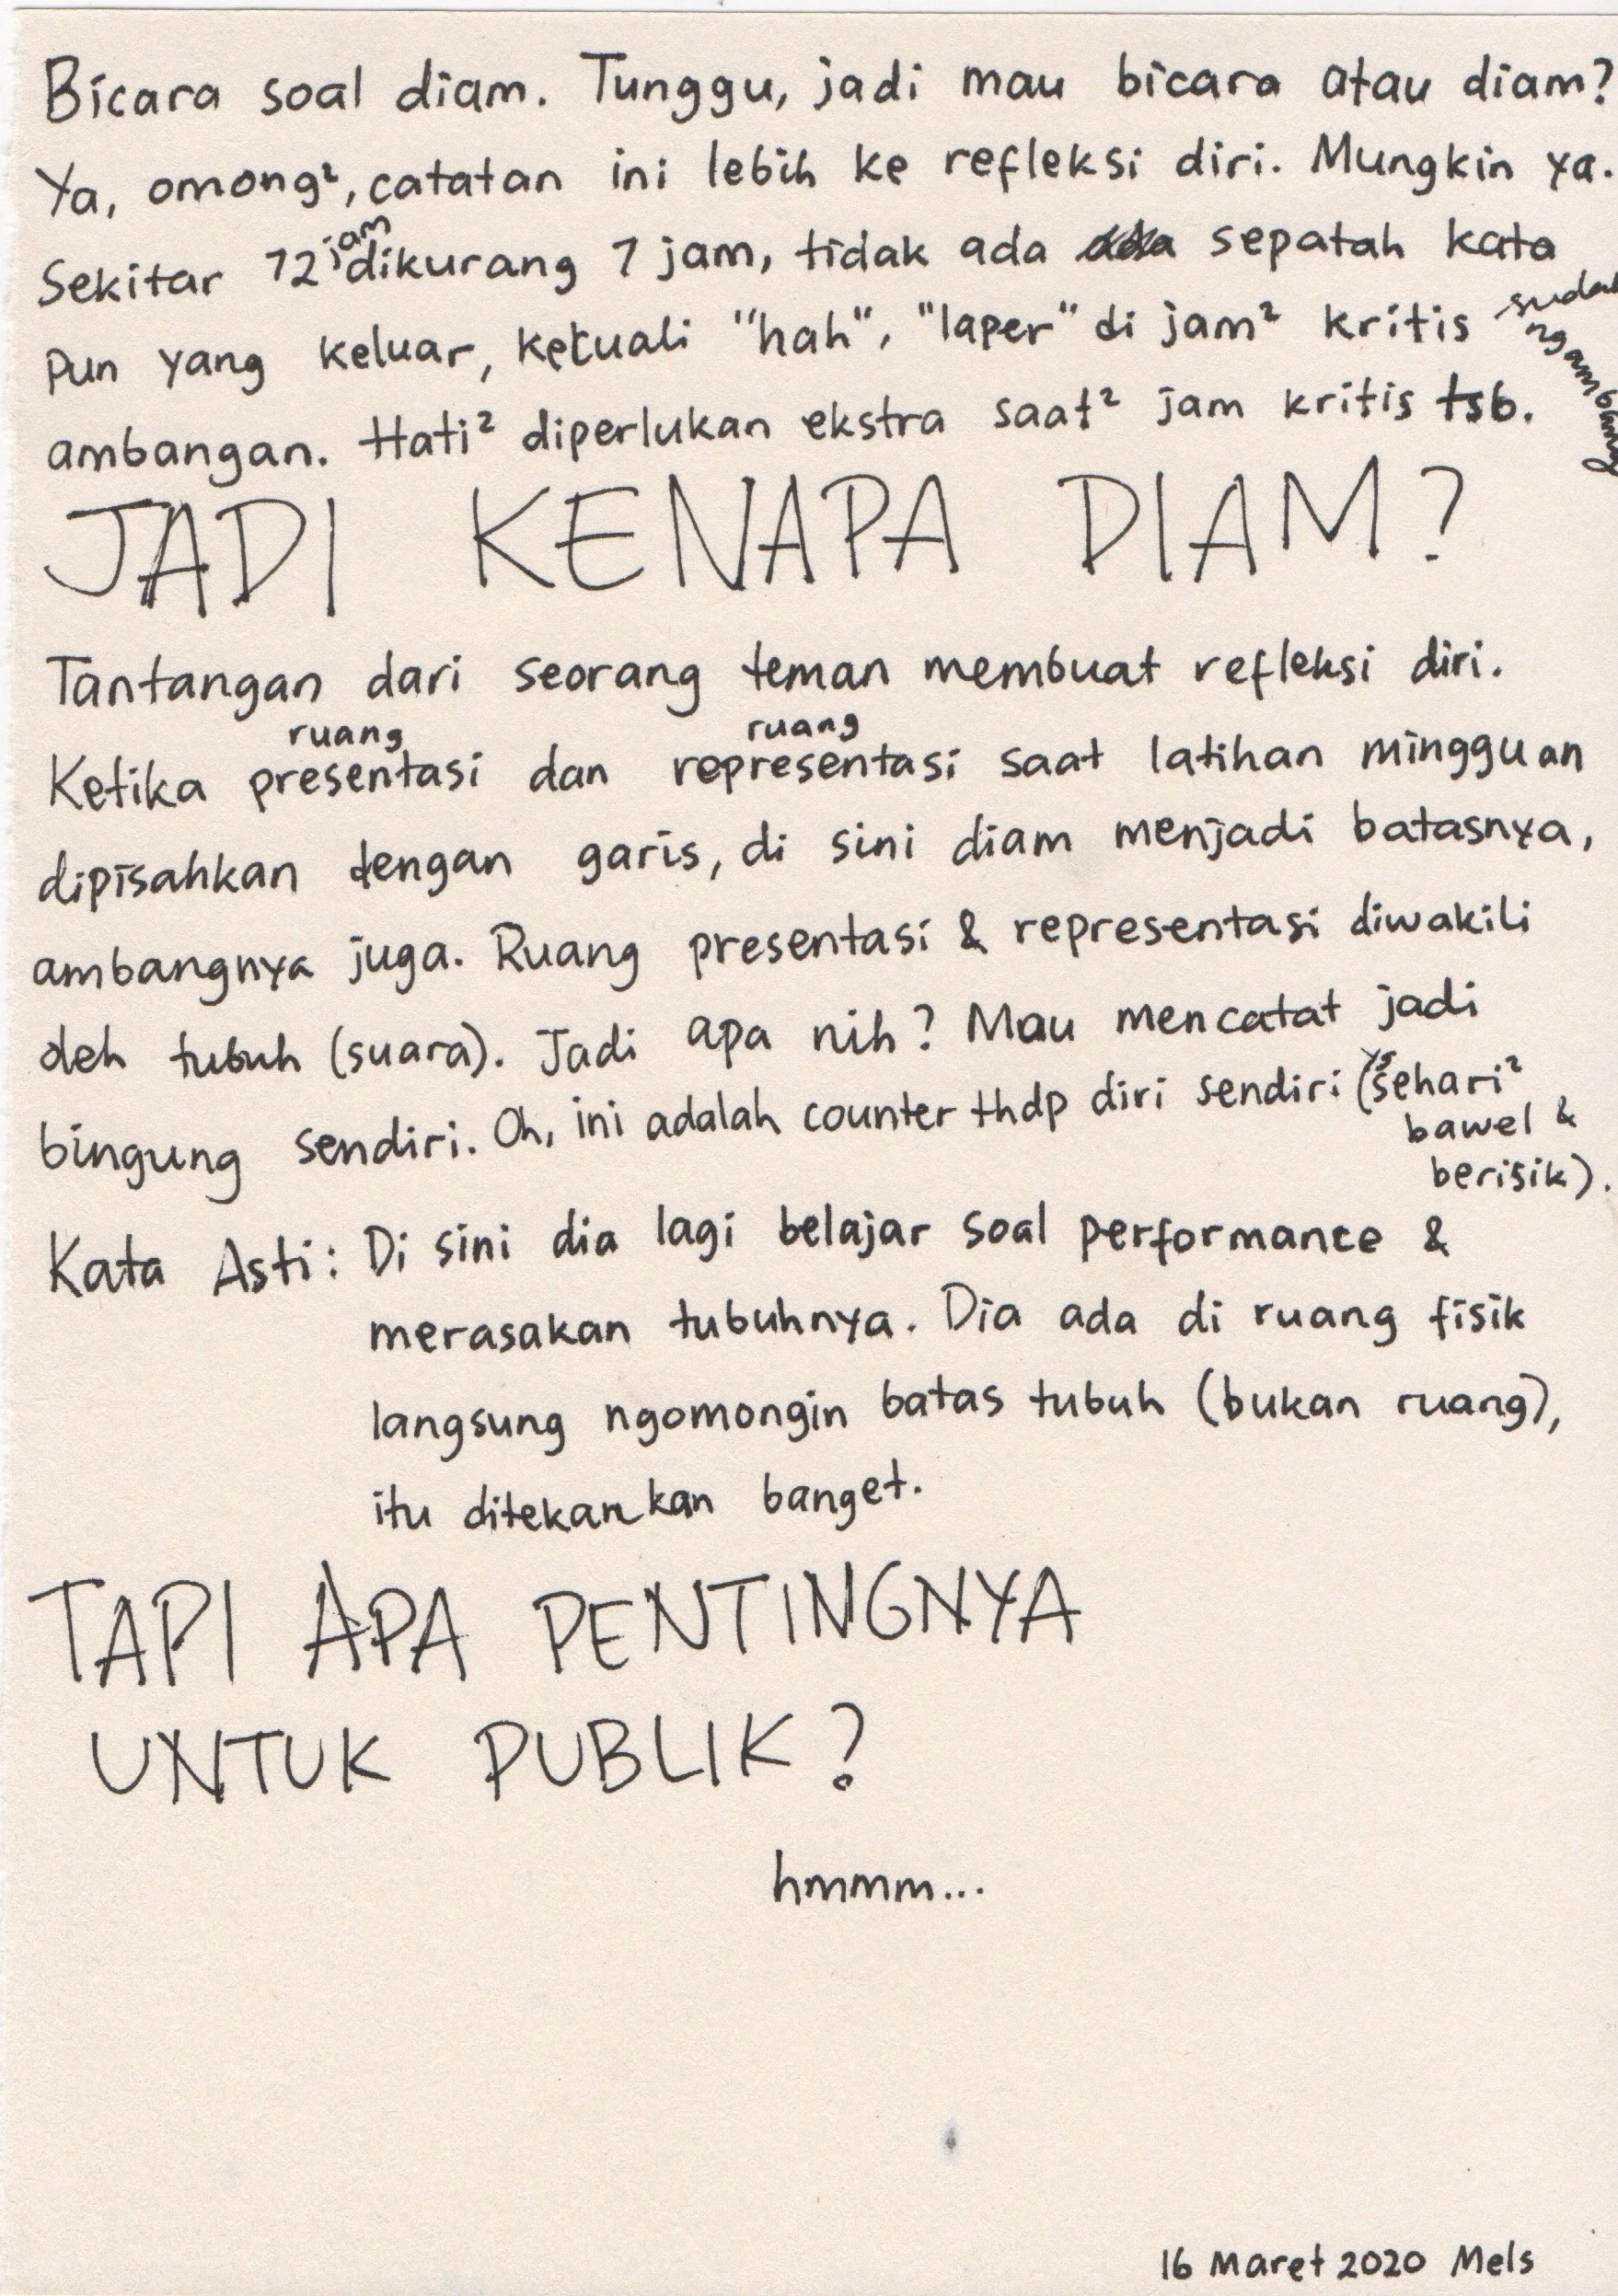 Bicara soal diam. Tunggu, jadi mau bicara atau diam?
Ya, omong², catatan ini lebih ke refleksi diri. Mungkin ya.
Sekitar 12 jam dikurang 7 jam, tidak ada sepatah kata
pun yang keluar, kecuali "hah", "laper" di jam² kritis sudah ngambang
ambangan. Hati² diperlukan ekstra saat² jam kritis tsb.
JADI KENAPA DIAM?
Tantangan dari seorang teman membuat refleksi diri.
Ketika ruang presentasi dan ruang representasi saat latihan mingguan
dipisahkan dengan garis, di sini diam menjadi batasnya,
ambangnya juga. Ruang presentasi & representasi diwakili
oleh tubuh (suara). Jadi apa nih? Mau mencatat jadi
bingung sendiri. Oh, ini adalah counter thdp diri sendiri (yg sehari²
bawel &
berisik).
Kata Asti: Di sini dia lagi belajar soal performance &
merasakan tubuhnya. Dia ada di ruang fisik
langsung ngomongin batas tubuh (bukan ruang),
itu ditekankan banget.
TAPI APA PENTINGNYA
UNTUK PUBLIK?
hmmm...
16 Maret 2020 Mels